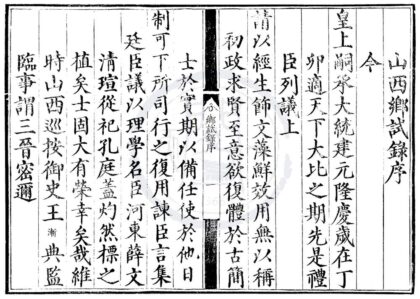 山西鄉試錄序
今
皇上嗣承大統建元隆慶歲在丁
卯適天下大比之期先是禮
臣列議上
請以經生師文藻鮮效用無以稱
初政求賢至意欲復體於古簡
鄉試錄序
一
士於實期以備任使於他日
制可下所司行之復用諫臣言集
廷臣議以理學名臣河東薛文
清瑄從祀孔庭蓋灼然標之
植矣士固大有榮幸矣哉維
時山西巡按御史王漸典監
臨事謂三晉密邇